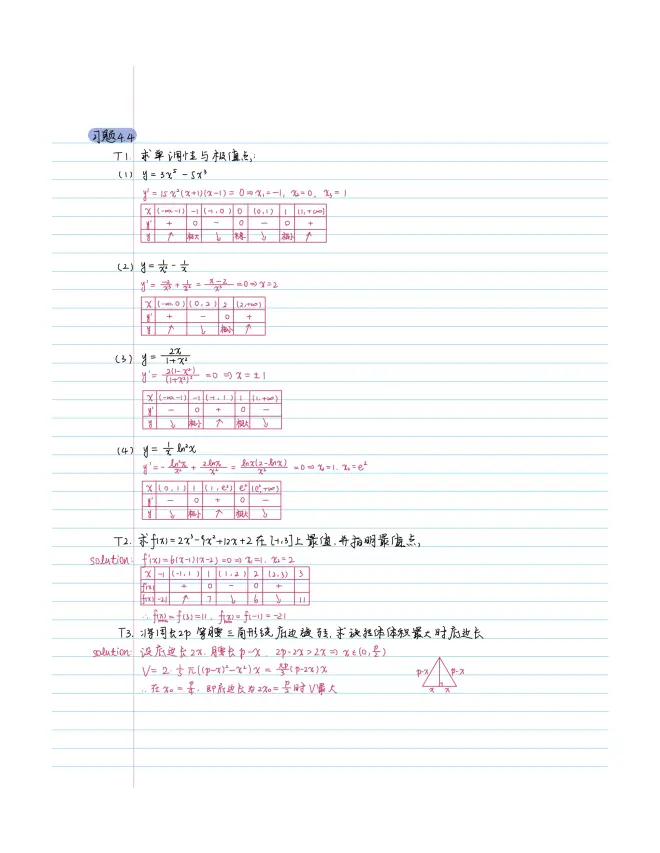 习题4.4
T1. 求单调性与极值点:
(1) y = 3x⁵ - 5x³
y' = 15x²(x+1)(x-1) = 0 ⇒ x₁ = -1, x₂ = 0, x₃ = 1
x (-∞,-1) -1 (-1,0) 0 (0,1) 1 (1,+∞)
y' + 0 - 0 - 0 +
y ↗ 极大 ↘ ↘ 极小 ↗
(2) y = 1/x² - 1/x
y' = -2/x³ + 1/x² = (x-2)/x³ = 0 ⇒ x = 2
x (-∞,0) (0,2) 2 (2,+∞)
y' + - 0 +
y ↗ ↘ 极小 ↗
(3) y = 2x/(1+x²)
y' = 2(1-x²)/(1+x²)² = 0 ⇒ x = ±1
x (-∞,-1) -1 (-1,1) 1 (1,+∞)
y' - 0 + 0 -
y ↘ 极小 ↗ 极大 ↘
(4) y = 1/x ln²x
y' = -ln²x/x² + 2lnx/x² = lnx(2-lnx)/x² = 0 ⇒ x₁ = 1, x₂ = e²
x (0,1) 1 (1,e²) e² (e²,+∞)
y' - 0 + 0 -
y ↘ 极小 ↗ 极大 ↘
T2. 求f(x) = 2x³-9x²+12x+2 在[-1,3]上最值,并指明最值点.
solution: f'(x) = 6(x-1)(x-2) = 0 ⇒ x₁ = 1, x₂ = 2
x -1 (-1,1) 1 (1,2) 2 (2,3) 3
f'(x) + 0 - 0 +
f(x) -21 ↗ 7 ↘ 6 ↗ 11
∴ = f(3) = 11, = f(-1) = -21
T3. 将周长2p等腰三角形绕底边旋转,求旋转体体积最大时底边长
solution: 设底边长2x, 腰长p-x, 2p-2x > 2x ⇒ x ∈ (0, p/2)
p-x p-x
V = 2·1/3 π[(p-x)²-x²]x = 2πp/3 (p-2x)x
x x
∴ 在x₀ = p/4, 即底边长为2x₀ = p/2时V最大